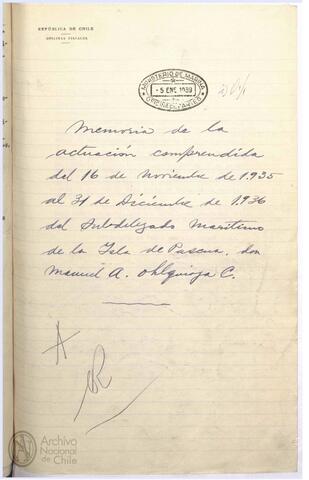 REPÚBLICA DE CHILE
OFICINAS FISCALES
MINISTERIO DE MARINA
- 5 ENE 1939
OFICINA DE PARTES
Memoria de la
actuación comprendida
del 16 de Noviembre de 1.935
al 31 de Diciembre de 1.936
del Subdelegado Marítimo
de la Isla de Pascua, don
Manuel A. Ohlquioza C.
A
R
Archivo
Nacional
de Chile